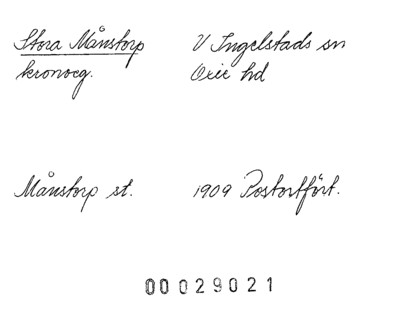 Stora Månstorp V Ingelstads sn
kronoeg. Oxie hd
Månstorp st. 1909 Postortfört.
00029021